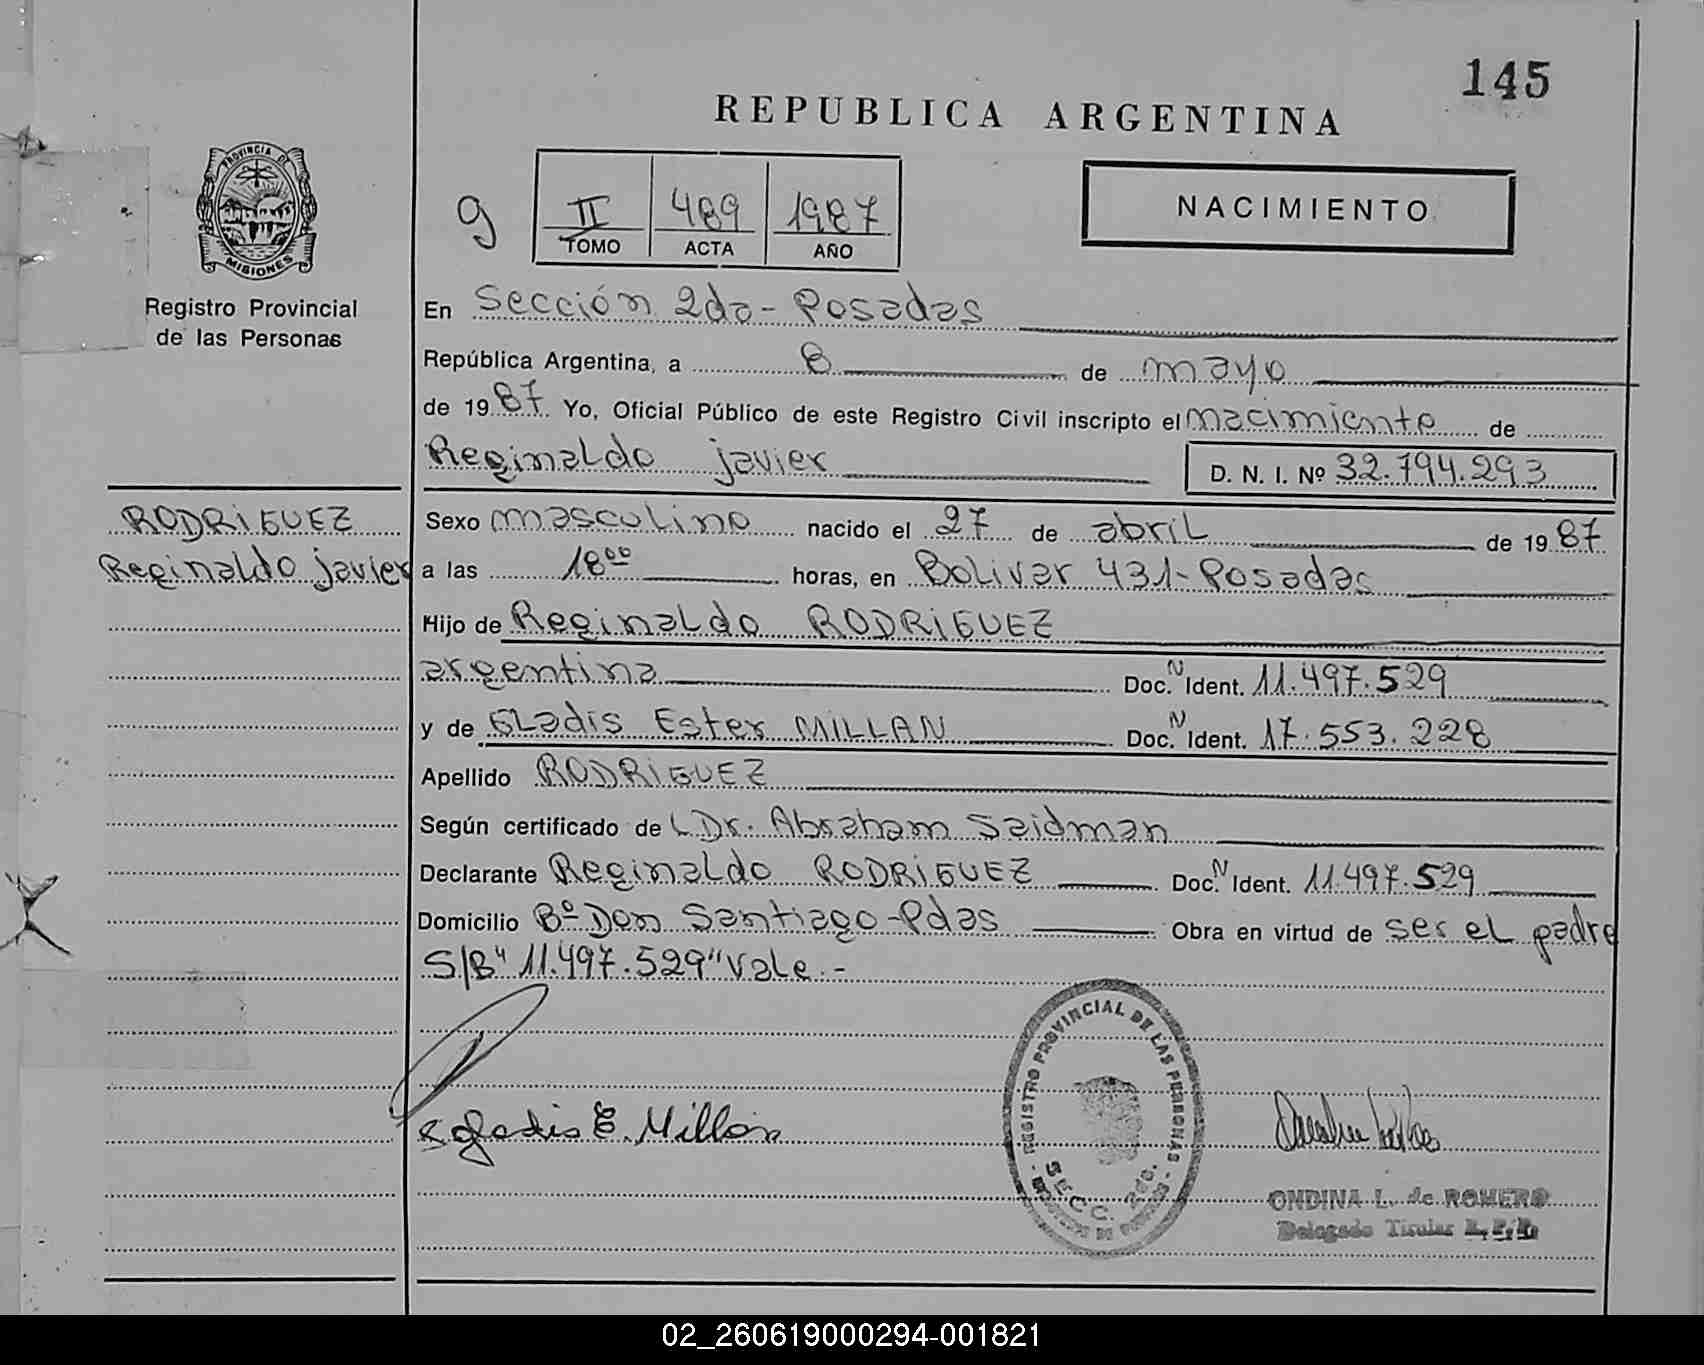 145
REPUBLICA ARGENTINA
PROVINCIA DE
MISIONES
Registro Provincial
de las Personas
9
II 489 1987
TOMO ACTA AÑO
NACIMIENTO
En Sección 2da - Posadas
República Argentina, a 8 de mayo
de 1987 Yo, Oficial Público de este Registro Civil inscripto el nacimiento de
Reginaldo javier D. N. I. Nº 32.794.293
RODRIGUEZ
Reginaldo javier
Sexo masculino nacido el 27 de abril de 1987
a las 18ºº horas, en Bolivar 431 - Posadas
Hijo de Reginaldo RODRIGUEZ
argentina Doc.N Ident. 11.497.529
y de Gladis Ester MILLAN Doc.N Ident. 17.553.228
Apellido RODRIGUEZ
Según certificado de L Dr. Abraham Saidman
Declarante Reginaldo RODRIGUEZ Doc.N Ident. 11.497.529
Domicilio Bº Don Santiago - Pdas Obra en virtud de ser el padre
S/B "11.497.529" Vale.-
Gladis E. Millan
REGISTRO PROVINCIAL DE LAS PERSONAS
SECC. 2da.
ONDINA L. de ROMERO
Delegado Titular
02_260619000294-001821